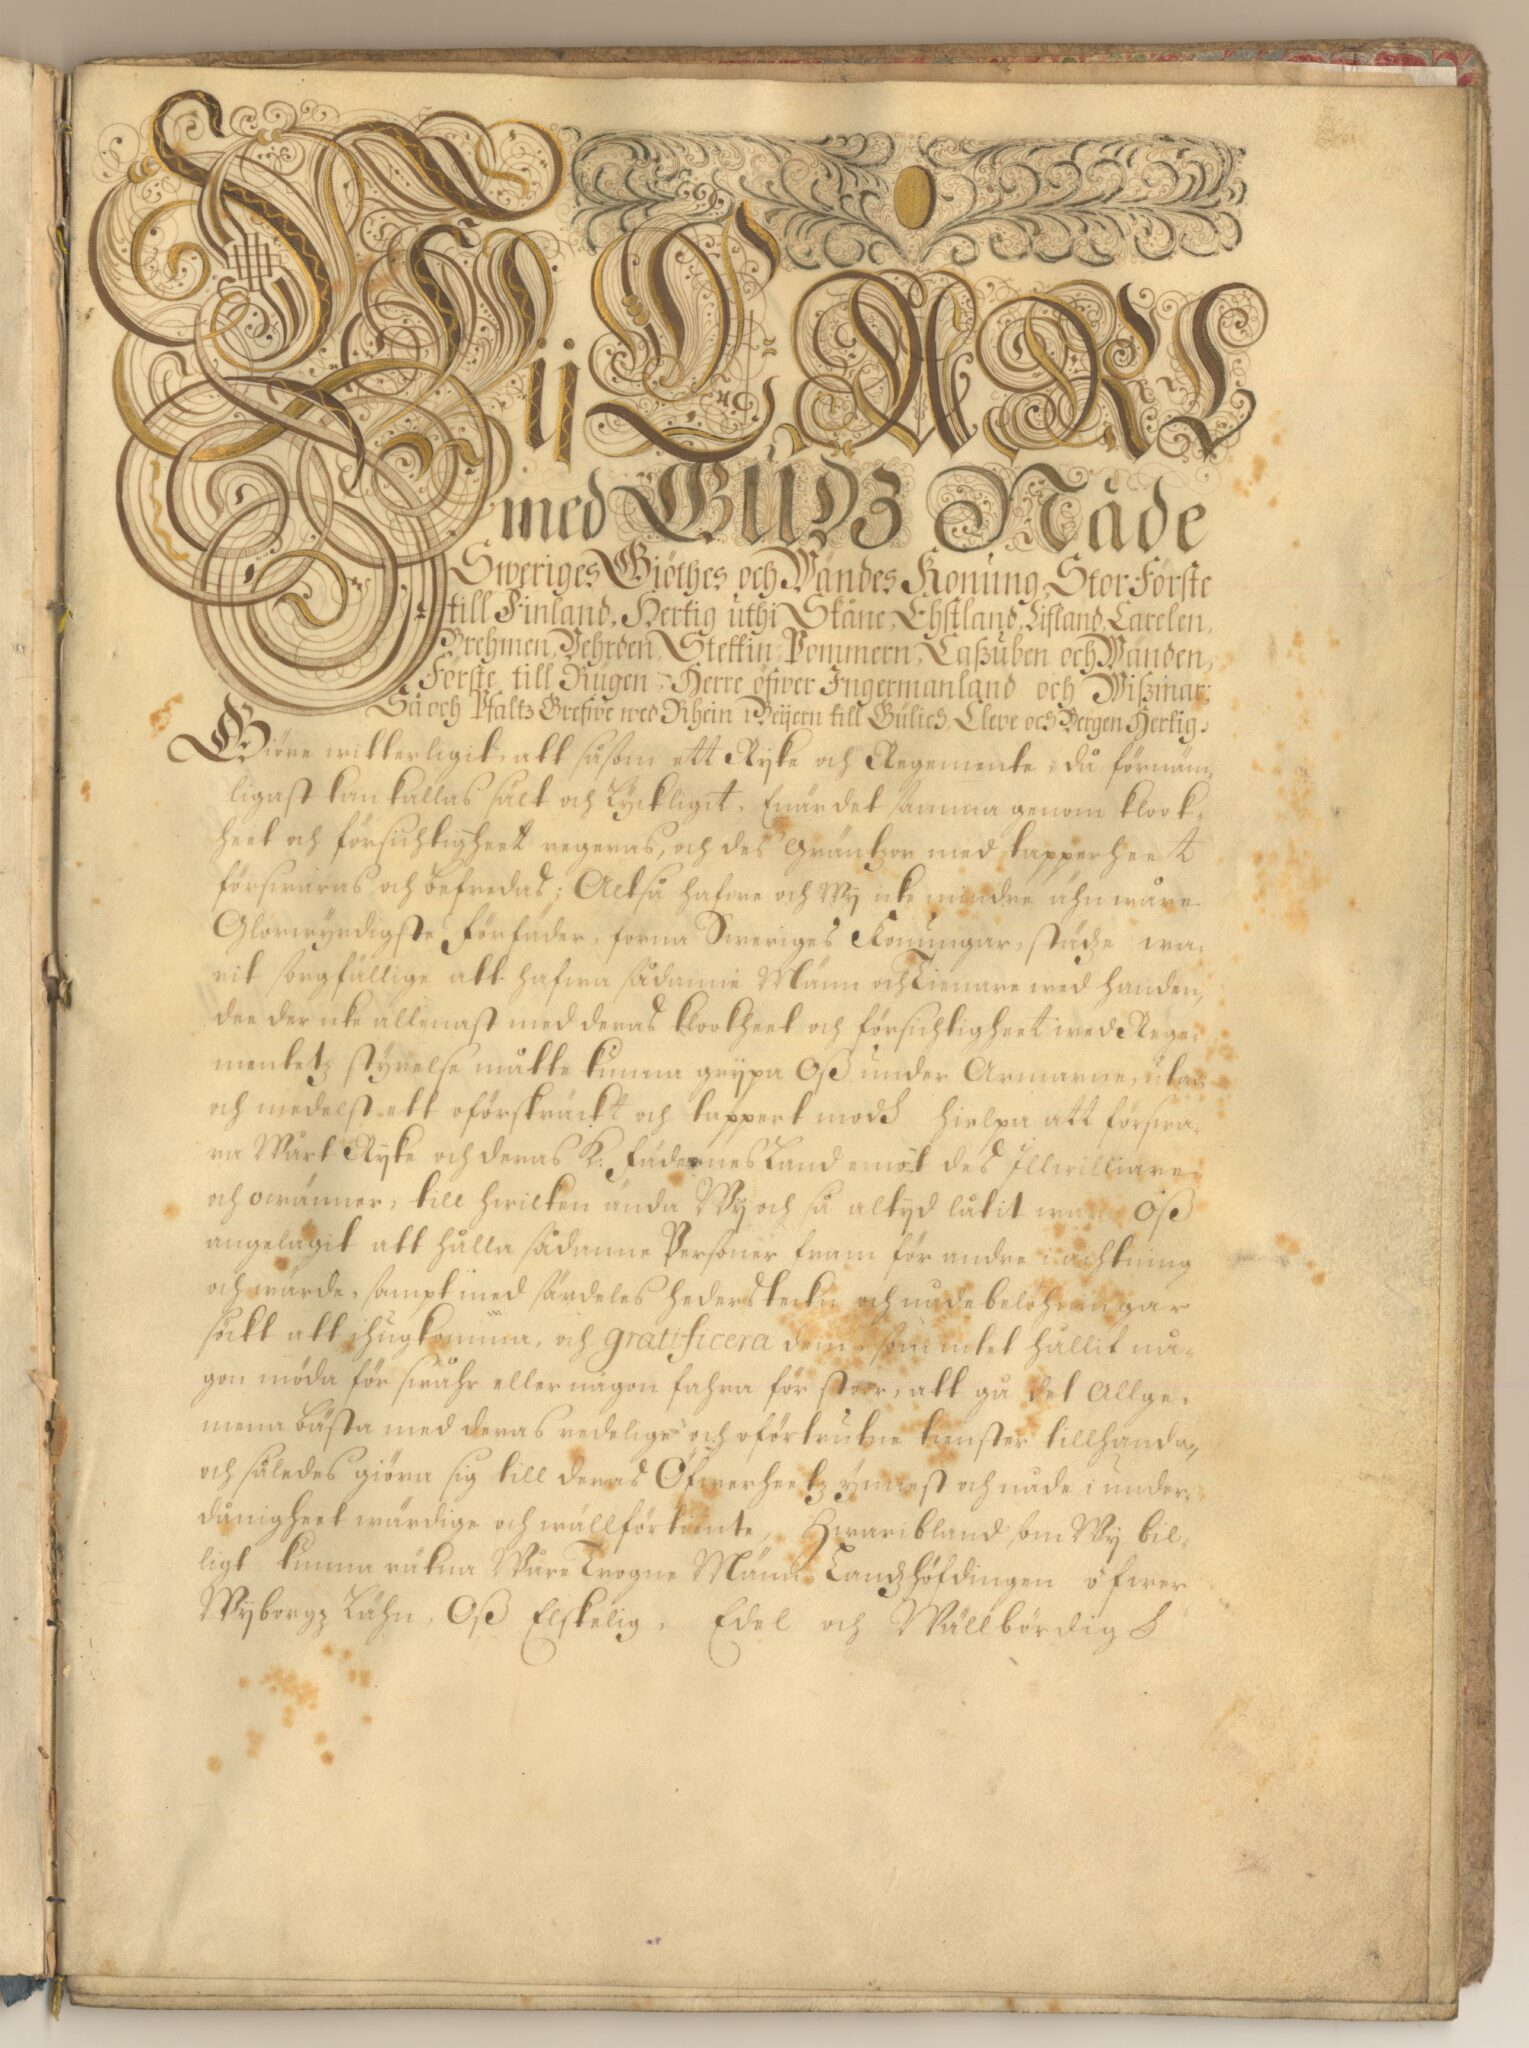 Wij CARL
med GUDZ Nåde
Sweriges Giöthes och Wändes Konung, Stor Förste
till Finland, Hertig uthi Skåne, Ehstland, Lifland, Carelen,
Brehmen, Vehrden, Stettin Pommern, Caßuben och Wänden,
Förste till Rügen, Herre öfwer Ingermanland och Wißmar;
Så och Pfaltz Grefwe wed Rhein i Beijern till Gülich, Cleve och Bergen Hertig.
Giöre witterligit, att såsom ett Ryke och Regemente, då förnäm-
ligast kan kallas sält och Lyckligit, Enär det samma genom klook-
heet och försichtigheet regeras, och des Gräntzor med tapperheet
förswaras och befredas; Altså hafwe och Wij icke mindre ähn wåre
Glorwyrdigste Förfäder, forna Sweriges Konungar, städze wa-
rit sorgfällige att hafwa sådanne Männ och Tienare wed handen,
dee der icke allenast med deras klookheet och försichtigheet wed Rege-
mentetz styrelse måtte kunna grypa Oß under Armarne, utan
och medelst ett oförskräckt och tappert modh hielpa att förswa-
ra Wårt Ryke och deras K: Fädernes Land emot des Illwilliare
och owänner, till hwilken ända Wij och så altyd låtit wara Oß
angelägit att hålla sådanne Personer fram för andre i achtning
och wärde, sampt med särdeles hederstekn och nådebelöhningar
sökt att ihugkomma, och gratificera dem, som intet hållit nå-
gon möda för swåhr eller någon fahra för stoor, att gå det Allge-
mena bästa med deras redelige och oförtrutne tienster tillhanda,
och således giöra sig till deras Öfwerheetz ynnest och nåde i under-
dånigheet wärdige och wällförtiente, Hwaribland som Wij bil-
ligt kunna räkna Wåre Trogne Männ Landzhöfdingen öfwer
Wyborgz Lähn, Oß Elskelig, Edel och Wällbördig h